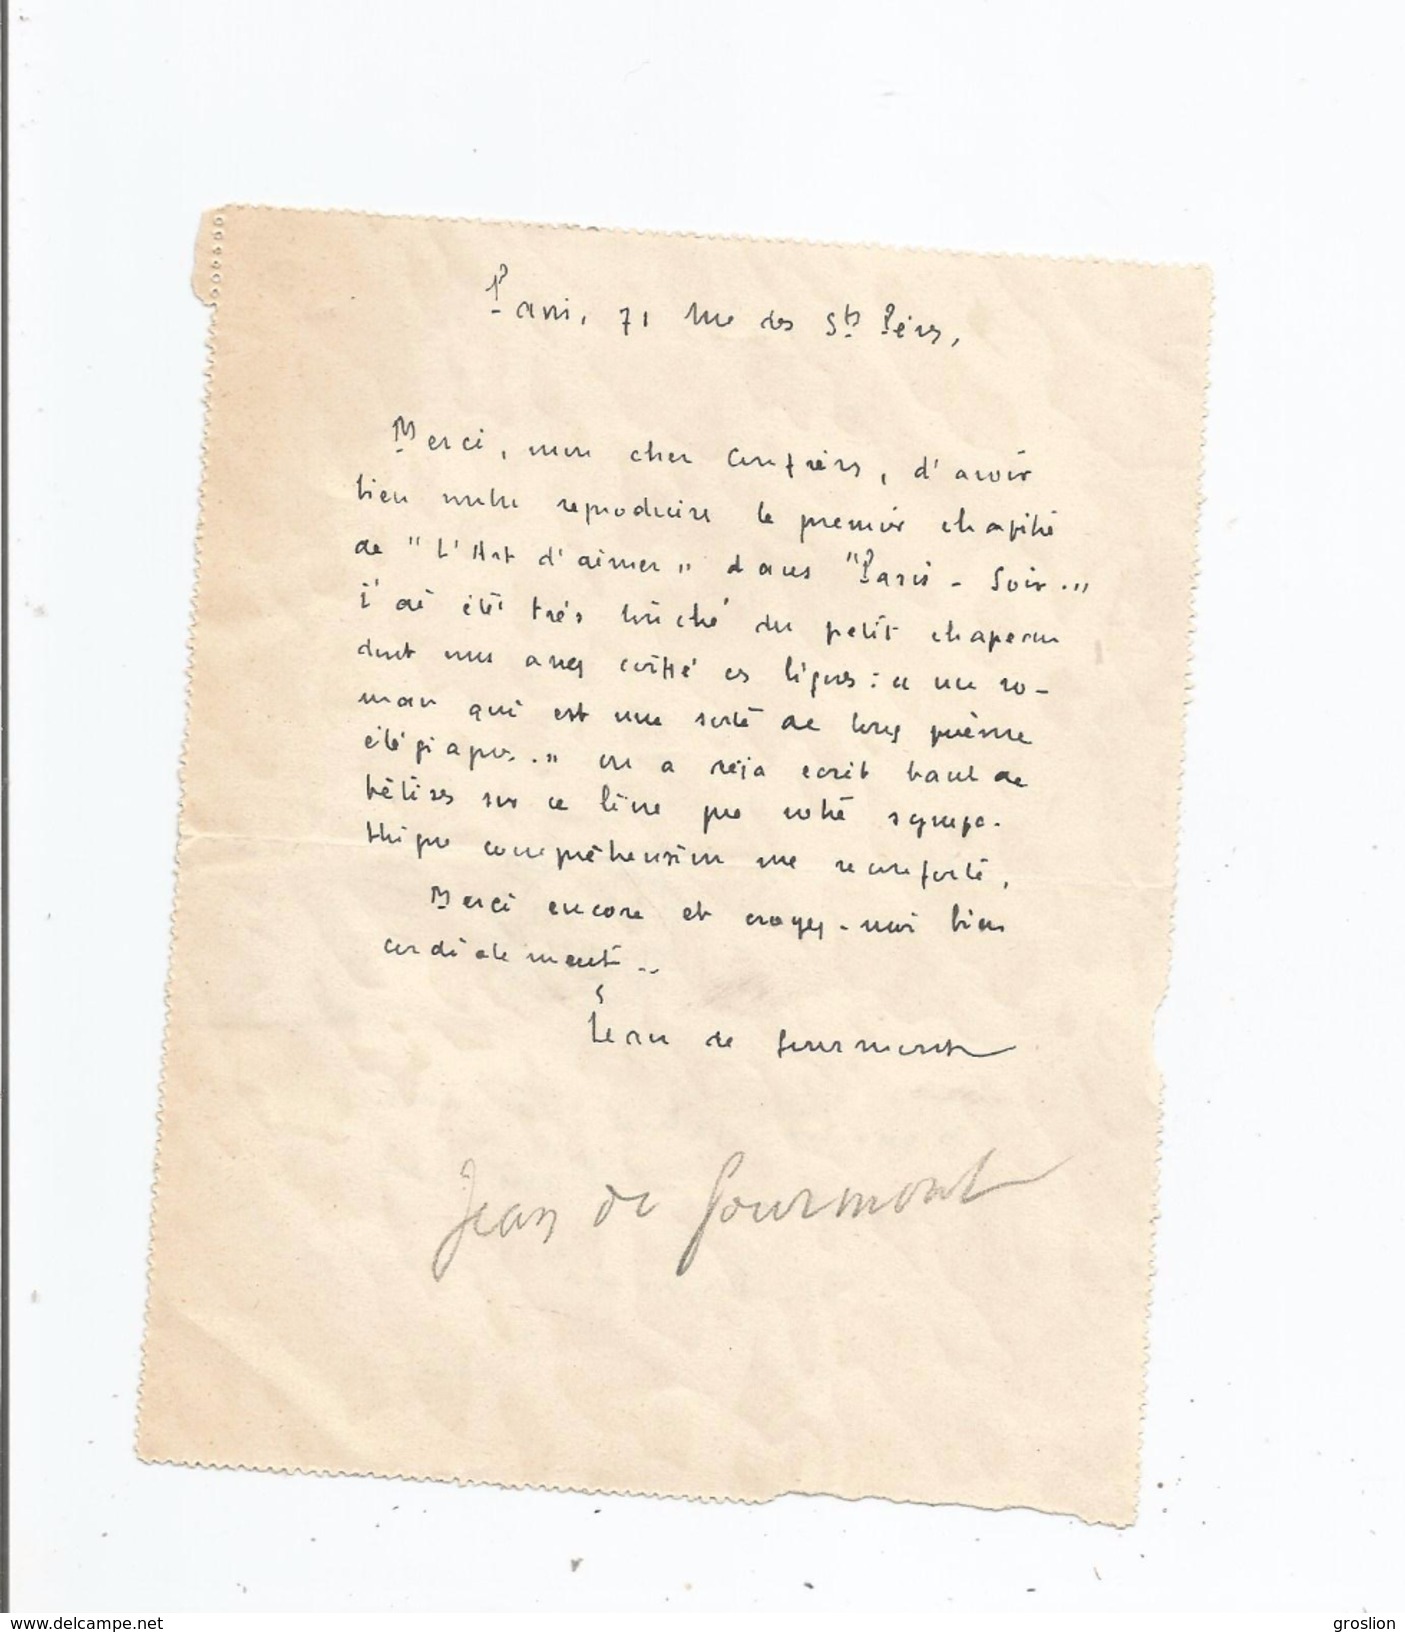 Paris, 71 rue des Sts Pères,
Merci, mon cher Confrère, d'avoir
bien voulu reproduire le premier chapitre
de "L'Art d'aimer" dans "Paris-Soir."
J'ai été très touché du petit chapeau
dont vous avez coiffé ces lignes: "un ro-
man qui est une sorte de long poème
élégiaque." On a déjà écrit tant de
bêtises sur ce livre que votre sympa-
thique compréhension me réconforte.
Merci encore et croyez-moi bien
cordialement..
Jean de Gourmont
Jean de Gourmont
www.delcampe.net
groslion